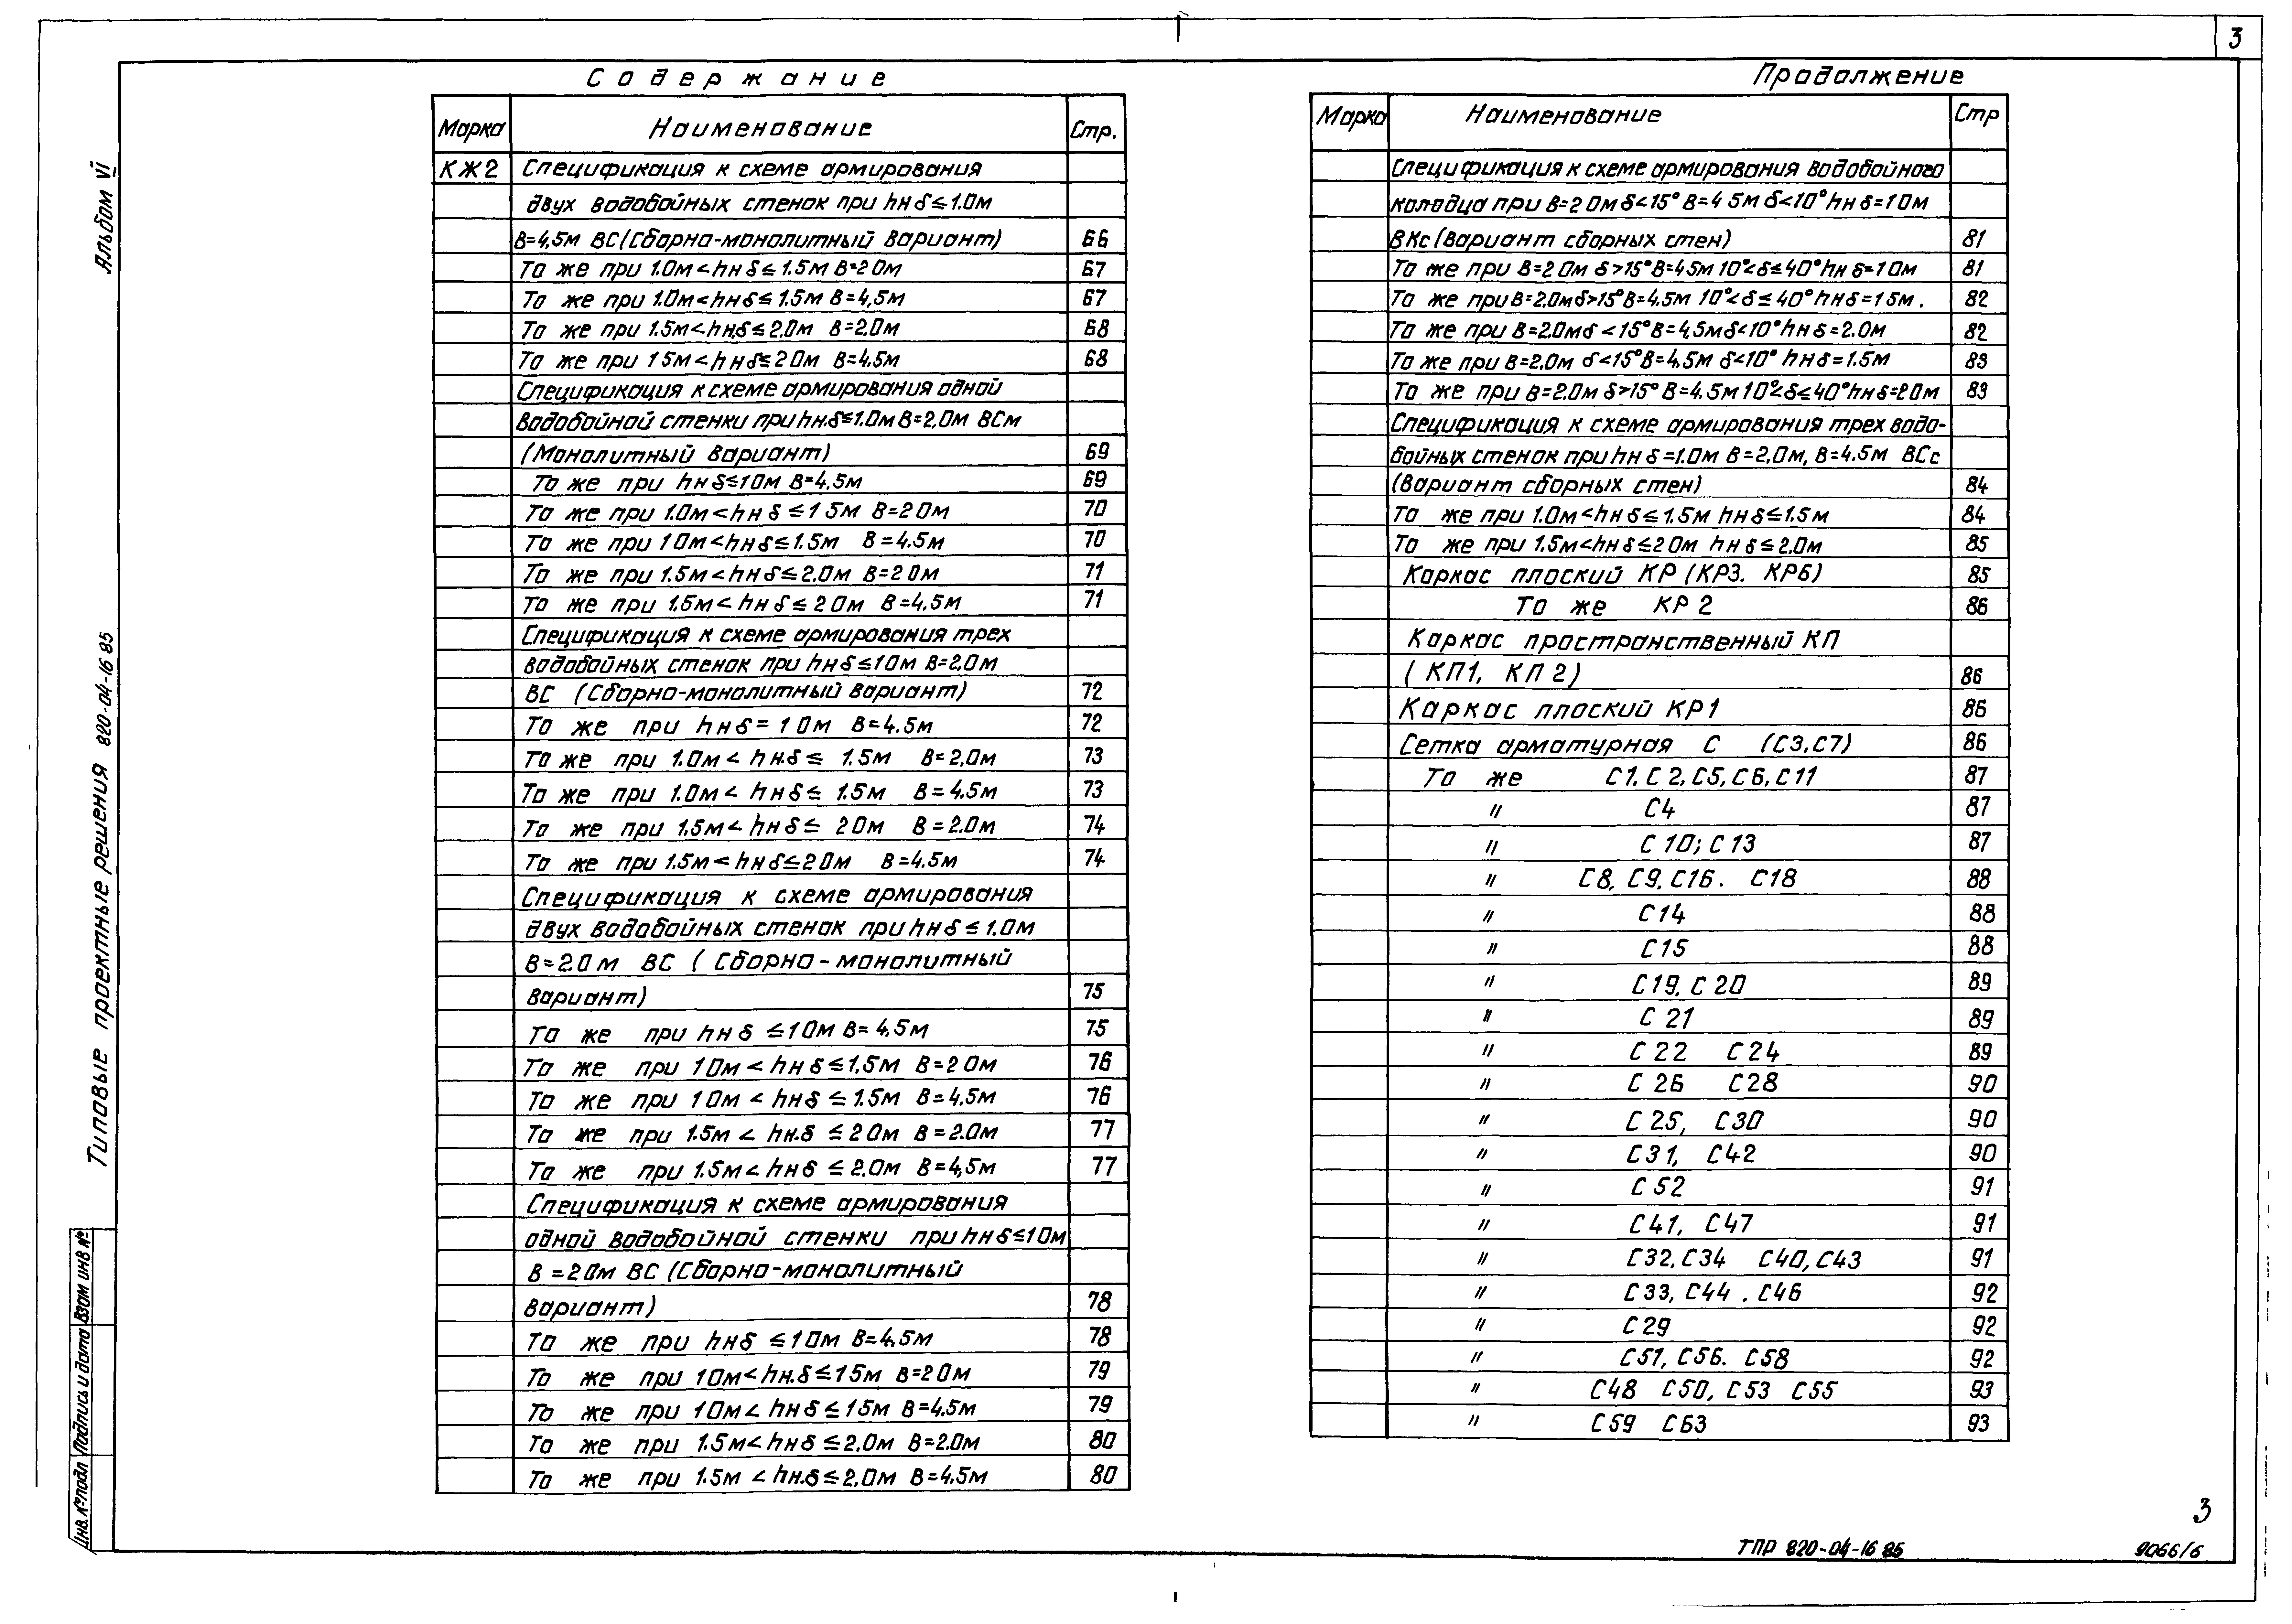 3
Содержание
Марка Наименование Стр.
КЖ2 Спецификация к схеме армирования
двух водобойных стенок при hн б ≤ 1.0м
В=4,5м ВС (Сборно-монолитный вариант) 66
То же при 1.0м < hн б ≤ 1.5м В=2 0м 67
То же при 1.0м < hн б ≤ 1.5м В=4,5м 67
То же при 1.5м < hн.б ≤ 2.0м В=2.0м 68
То же при 1 5м < hн б ≤ 2 0м В=4.5м 68
Спецификация к схеме армирования одной
водобойной стенки при hн.б ≤ 1.0м В=2,0м ВСм
(Монолитный вариант) 69
То же при hн б ≤ 1 0м В=4.5м 69
То же при 1.0м < hн б ≤ 1 5м В=2 0м 70
То же при 1 0м < hн б ≤ 1.5м В=4.5м 70
То же при 1.5м < hн б ≤ 2.0м В=2 0м 71
То же при 1.5м < hн б ≤ 2 0м В=4.5м 71
Спецификация к схеме армирования трех
водобойных стенок при hн б ≤ 1 0м В=2,0м
ВС (Сборно-монолитный вариант) 72
То же при hн б = 1 0м В=4.5м 72
То же при 1.0м < hн.б ≤ 1.5м В=2,0м 73
То же при 1.0м < hн б ≤ 1.5м В=4.5м 73
То же при 1.5м < hн б ≤ 2 0м В=2.0м 74
То же при 1.5м < hн б ≤ 2 0м В=4.5м 74
Спецификация к схеме армирования
двух водобойных стенок при hн б ≤ 1.0м
В=2.0м ВС (Сборно-монолитный
вариант) 75
То же при hн б ≤ 1 0м В=4,5м 75
То же при 1 0м < hн б ≤ 1,5м В=2 0м 76
То же при 1 0м < hн б ≤ 1.5м В=4.5м 76
То же при 1.5м < hн.б ≤ 2 0м В=2.0м 77
То же при 1.5м < hн б ≤ 2.0м В=4,5м 77
Спецификация к схеме армирования
одной водобойной стенки при hн б ≤ 1 0м
В=2 0м ВС (Сборно-монолитный
вариант) 78
То же при hн б ≤ 1 0м В=4,5м 78
То же при 1 0м < hн.б ≤ 1 5м В=2 0м 79
То же при 1 0м < hн б ≤ 1 5м В=4.5м 79
То же при 1.5м < hн б ≤ 2.0м В=2.0м 80
То же при 1.5м < hн.б ≤ 2,0м В=4.5м 80
Продолжение
Марка Наименование Стр
Спецификация к схеме армирования водобойного
колодца при В=2 0м б<15° В=4 5м б<10° hн б=1 0м
ВКс (вариант сборных стен) 81
То же при В=2 0м б>15° В=4 5м 10°<б≤40° hн б=1 0м 81
То же при В=2.0м б>15° В=4,5м 10°<б≤40° hн б=1 5м. 82
То же при В=2.0м б<15° В=4,5м б<10° hн б=2.0м 82
То же при В=2,0м б<15° В=4,5м б<10° hн б=1.5м 83
То же при В=2.0м б>15° В=4,5м 10°<б≤40° hн б=2 0м 83
Спецификация к схеме армирования трех водо-
бойных стенок при hн б=1.0м В=2,0м, В=4.5м ВСс
(вариант сборных стен) 84
То же при 1.0м < hн б ≤ 1.5м hн б ≤ 1.5м 84
То же при 1.5м < hн б ≤ 2 0м hн б ≤ 2.0м 85
Каркас плоский КР (КР3. КР6) 85
То же КР 2 86
Каркас пространственный КП
(КП1, КП 2) 86
Каркас плоский КР1 86
Сетка арматурная С (С3.С7) 86
То же С1, С 2, С5, С6, С11 87
" С4 87
" С 10; С 13 87
" С8, С9, С16. С18 88
" С14 88
" С15 88
" С19, С 20 89
" С 21 89
" С 22 С 24 89
" С 26 С28 90
" С 25, С30 90
" С31, С42 90
" С 52 91
" С41, С47 91
" С32, С34 С40, С43 91
" С33, С44 . С46 92
" С 29 92
" С51, С56. С58 92
" С48 С50, С53 С55 93
" С59 С63 93
Альбом VI
Типовые проектные решения 820-04-16 85
Взам инв №
Подпись и дата
Инв. № подл
3
ТПР 820-04-16 85
9066/6